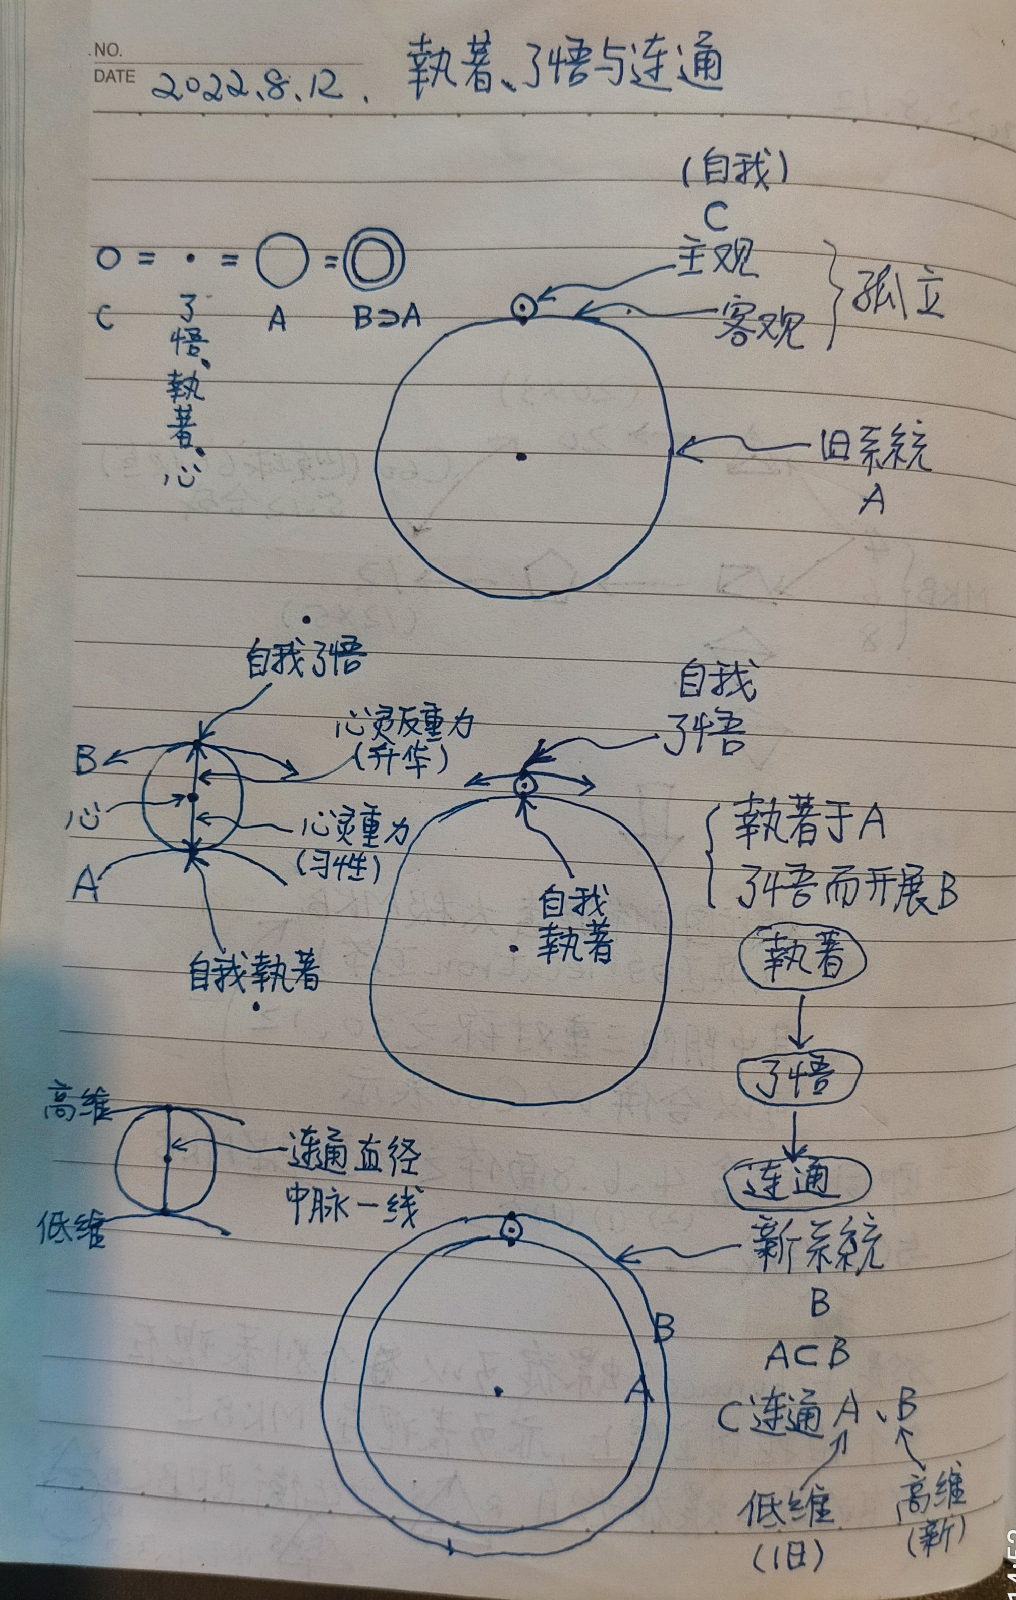 NO.
DATE 2022.8.12. 執著、了悟与连通
(自我)
C
主观
客观
孤立
= · = =
C
了悟、執著、心
A
B⊃A
旧系統
A
自我了悟
B
心灵反重力
(升华)
心
心灵重力
(习性)
A
自我執著
自我
了悟
自我
執著
執著于A
了悟而开展B
執著
了悟
连通
高维
连通直径
中脉一线
低维
新系統
B
A⊂B
B
A
C连通A、B
低维
(旧)
高维
(新)